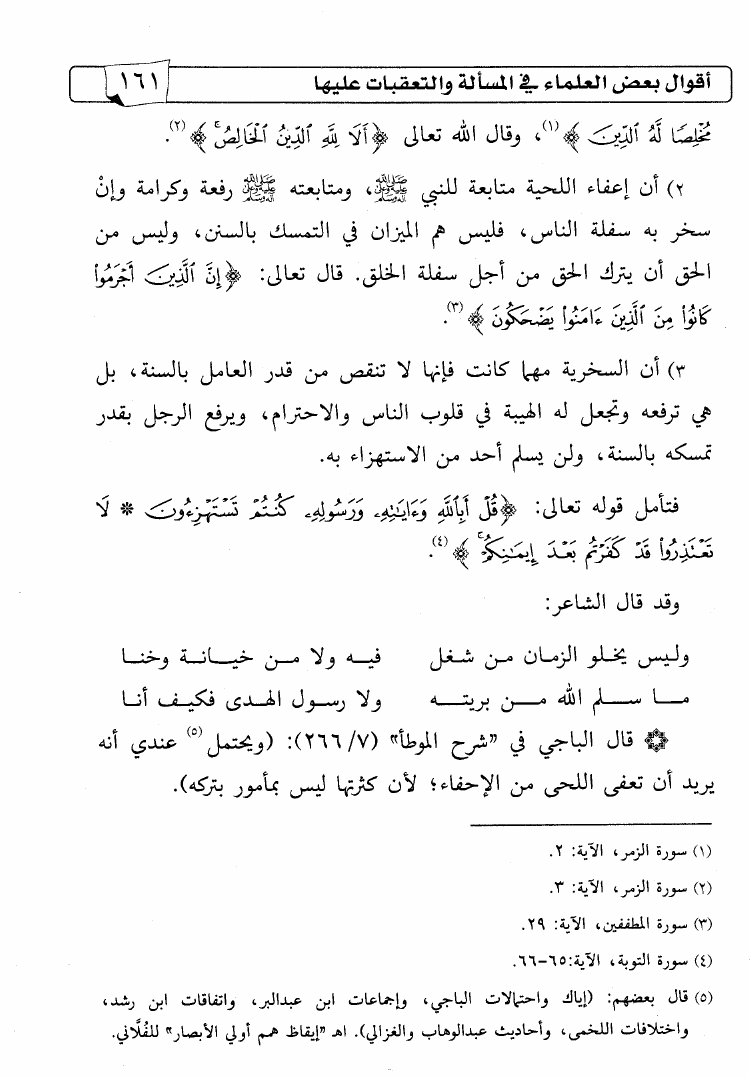 أقوال بعض العلماء في المسألة والتعقبات عليها ١٦١
مُخْلِصًا لَّهُ ٱلدِّينَ ﴾(١)، وقال الله تعالى ﴿أَلَا لِلَّهِ ٱلدِّينُ ٱلْخَالِصُ ۚ﴾(٢).
٢) أن إعفاء اللحية متابعة للنبي ﷺ، ومتابعته ﷺ رفعة وكرامة وإنْ
سخر به سفلة الناس، فليس هم الميزان في التمسك بالسنن، وليس من
الحق أن يترك الحق من أجل سفلة الخلق. قال تعالى: ﴿إِنَّ ٱلَّذِينَ أَجْرَمُوا۟
كَانُوا۟ مِنَ ٱلَّذِينَ ءَامَنُوا۟ يَضْحَكُونَ ﴾(٣).
٣) أن السخرية مهما كانت فإنها لا تنقص من قدر العامل بالسنة، بل
هي ترفعه وتجعل له الهيبة في قلوب الناس والاحترام، ويرفع الرجل بقدر
تمسكه بالسنة، ولن يسلم أحد من الاستهزاء به.
فتأمل قوله تعالى: ﴿قُلْ أَبِٱللَّهِ وَءَايَٰتِهِۦ وَرَسُولِهِۦ كُنتُمْ تَسْتَهْزِءُونَ * لَا
تَعْتَذِرُوا۟ قَدْ كَفَرْتُم بَعْدَ إِيمَٰنِكُمْ ۚ﴾(٤).
وقد قال الشاعر:
وليس يخلو الزمان من شغل فيه ولا من خيانة وخنا
ما سلم الله من بريته ولا رسول الهدى فكيف أنا
۞ قال الباجي في "شرح الموطأ" (٢٦٦/٧): (ويحتمل(٥) عندي أنه
يريد أن تعفى اللحى من الإحفاء؛ لأن كثرتها ليس بمأمور بتركه).
(١) سورة الزمر، الآية: ٢.
(٢) سورة الزمر، الآية: ٣.
(٣) سورة المطففين، الآية: ٢٩.
(٤) سورة التوبة، الآية:٦٥-٦٦.
(٥) قال بعضهم: (إياك واحتمالات الباجي، وإجماعات ابن عبدالبر، واتفاقات ابن رشد،
واختلافات اللخمى، وأحاديث عبدالوهاب والغزالي). اهـ "إيقاظ همم أولي الأبصار" للفُلَّاني.